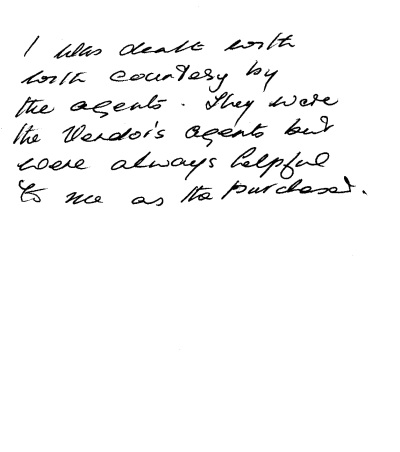 I was dealt with
with courtesy by
the agents. They were
the Vendor's agents but
were always helpful
to me as the purchaser.